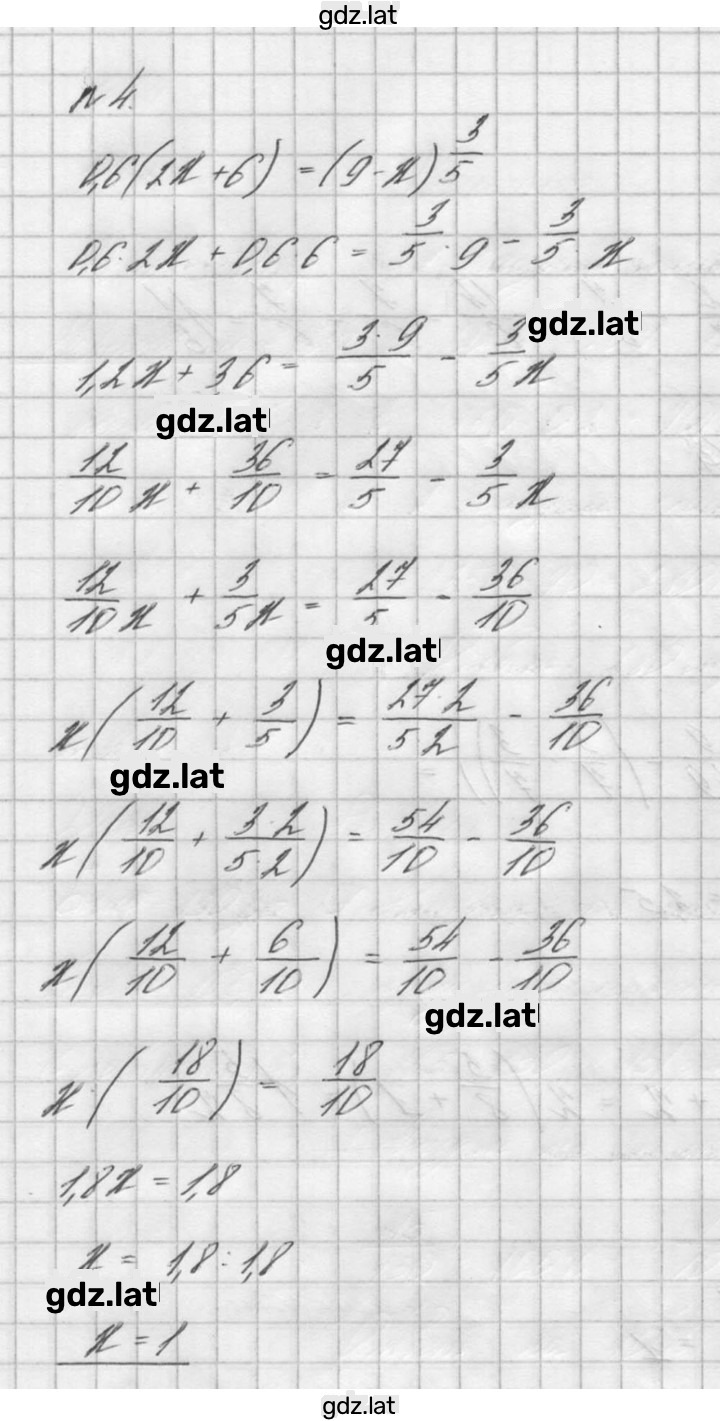 gdz.lat
№ 4.
0,6(2x+6) = (9-x) 3/5
0,6·2x + 0,6·6 = 3/5 · 9 - 3/5 · x
gdz.lat
1,2x + 36 = 3·9/5 - 3/5 x
gdz.lat
12/10 x + 36/10 = 27/5 - 3/5 x
12/10 x + 3/5 x = 27/5 - 36/10
gdz.lat
x(12/10 + 3/5) = 27·2/5 2 - 36/10
gdz.lat
x(12/10 + 3·2/5·2) = 54/10 - 36/10
x(12/10 + 6/10) = 54/10 - 36/10
gdz.lat
x·(18/10) = 18/10
1,8x = 1,8
x = 1,8 : 1,8
gdz.lat
x = 1
gdz.lat